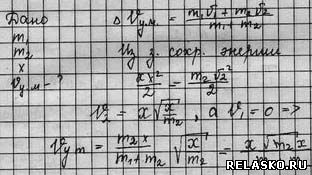 Дано
m₁
m₂
x
υц.м - ?
υц.м. = (m₁υ₁ + m₂υ₂) / (m₁ + m₂)
Из з. сохр. энергии
xx²/2 = m₂υ₂²/2
υ₂ = x√(x/m₂), а υ₁ = 0 =>
υцm = m₂x/(m₁+m₂) √(x/m₂) = x√(m₂x)
RELASKO.RU